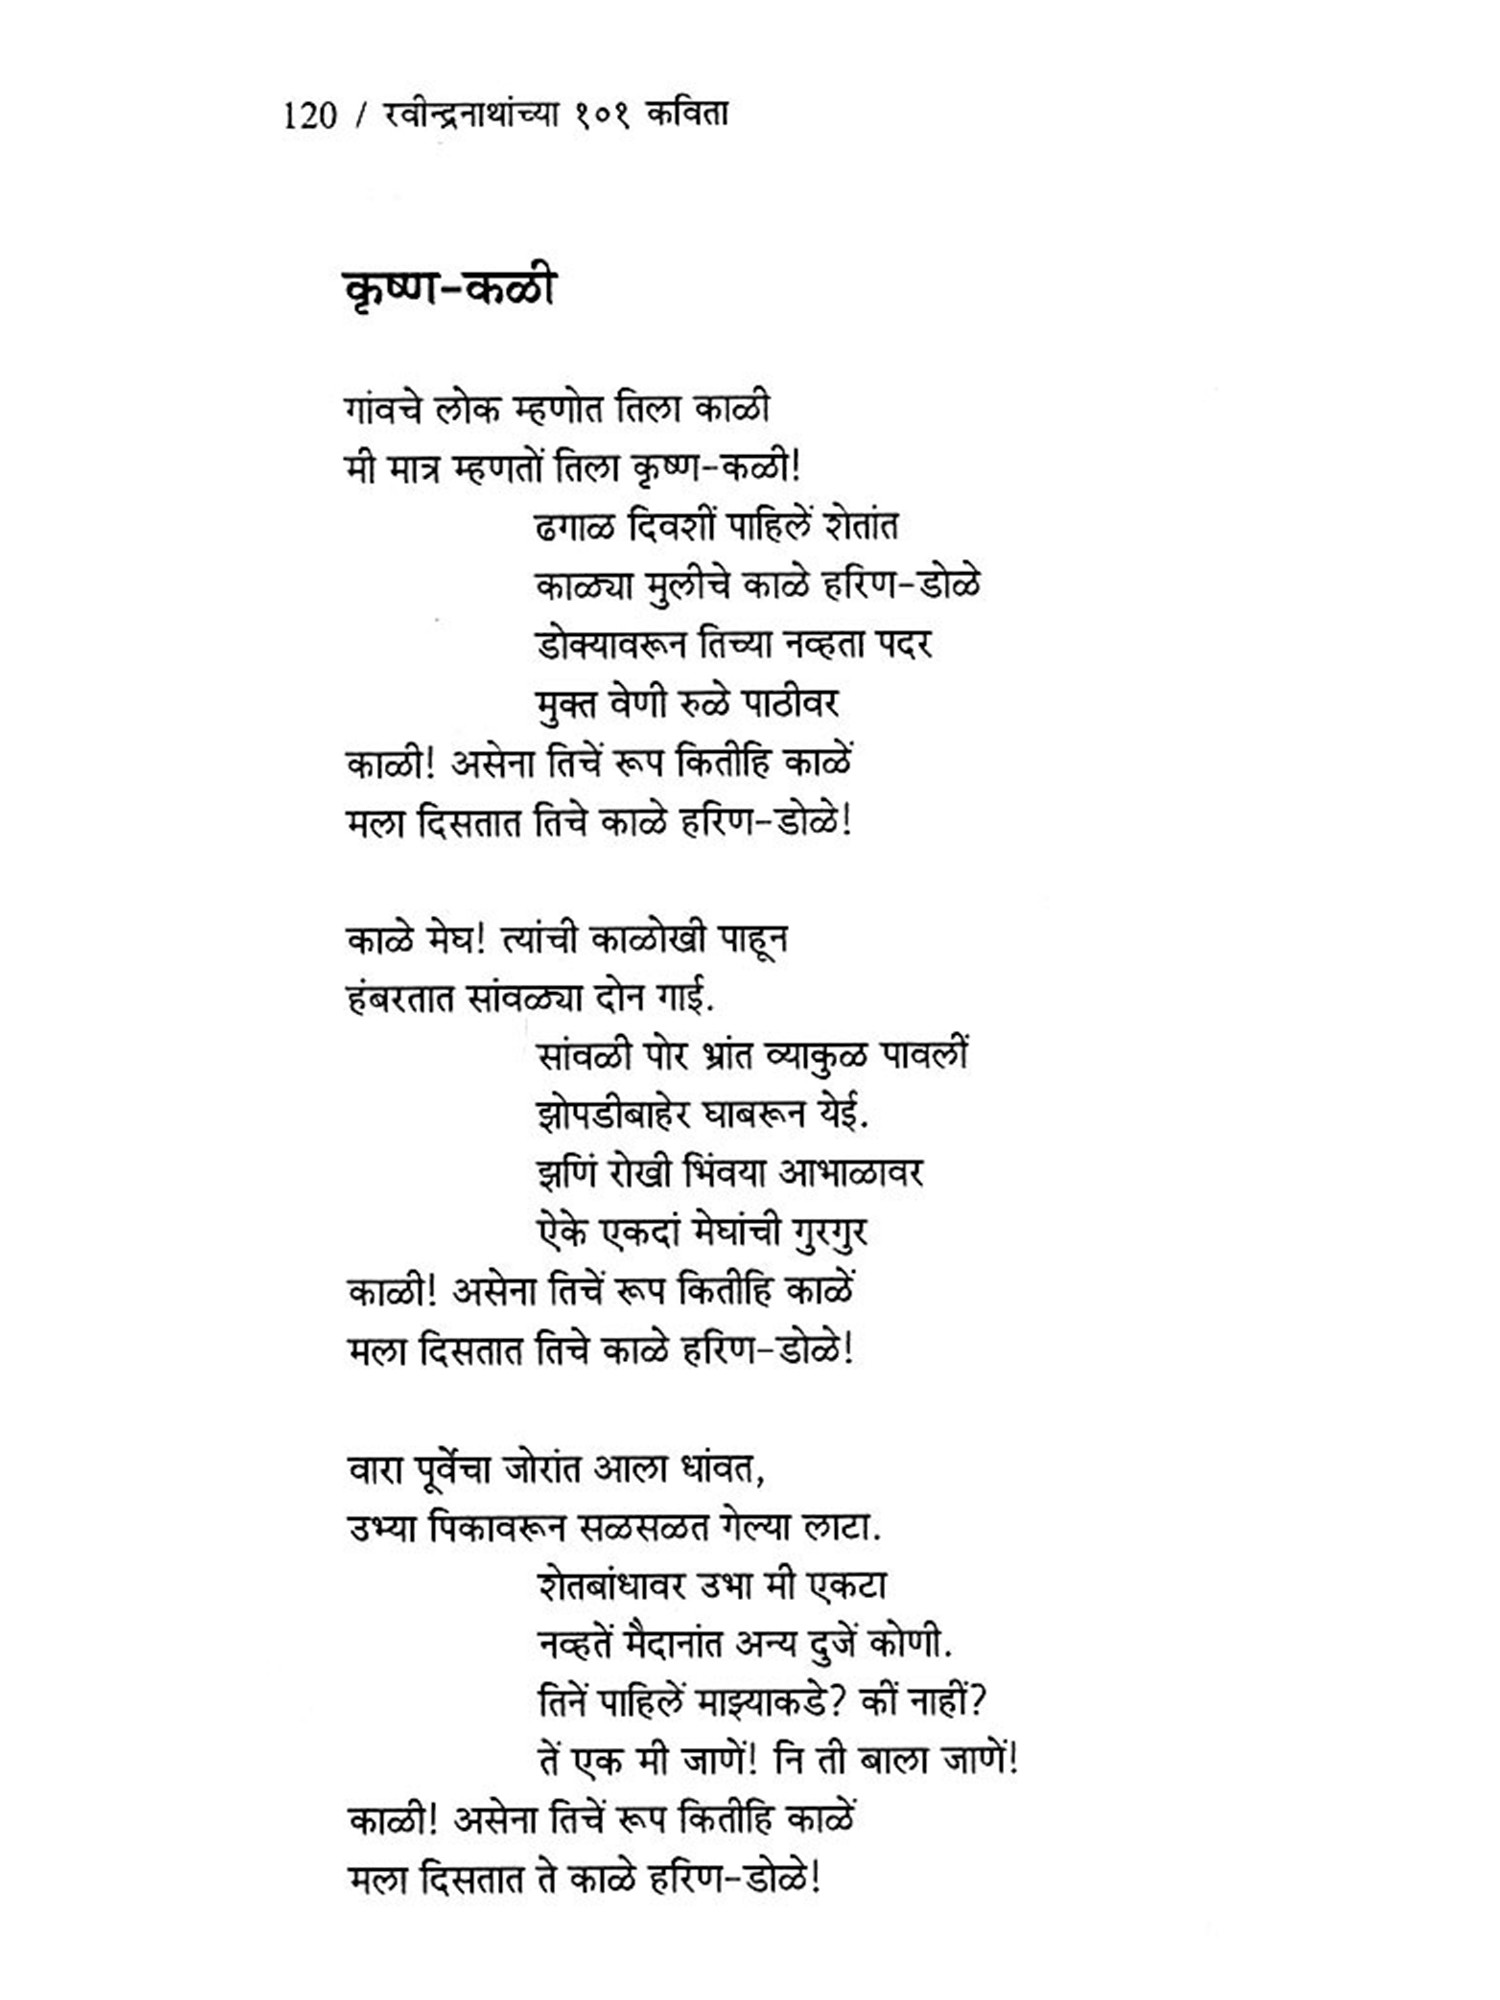 120 / रवीन्द्रनाथांच्या १०१ कविता
कृष्ण-कळी
गांवचे लोक म्हणोत तिला काळी
मी मात्र म्हणतों तिला कृष्ण-कळी!
ढगाळ दिवशीं पाहिलें शेतांत
काळ्या मुलीचे काळे हरिण-डोळे
डोक्यावरून तिच्या नव्हता पदर
मुक्त वेणी रुळे पाठीवर
काळी! असेना तिचें रूप कितीहि काळें
मला दिसतात तिचे काळे हरिण-डोळे!
काळे मेघ! त्यांची काळोखी पाहून
हंबरतात सांवळ्या दोन गाई.
सांवळी पोर भ्रांत व्याकुळ पावलीं
झोपडीबाहेर घाबरून येई.
झणिं रोखी भिंवया आभाळावर
ऐके एकदां मेघांची गुरगुर
काळी! असेना तिचें रूप कितीहि काळें
मला दिसतात तिचे काळे हरिण-डोळे!
वारा पूर्वेचा जोरांत आला धांवत,
उभ्या पिकावरून सळसळत गेल्या लाटा.
शेतबांधावर उभा मी एकटा
नव्हतें मैदानांत अन्य दुजें कोणी.
तिनें पाहिलें माझ्याकडे? कीं नाहीं?
तें एक मी जाणें! नि ती बाला जाणें!
काळी! असेना तिचें रूप कितीहि काळें
मला दिसतात ते काळे हरिण-डोळे!